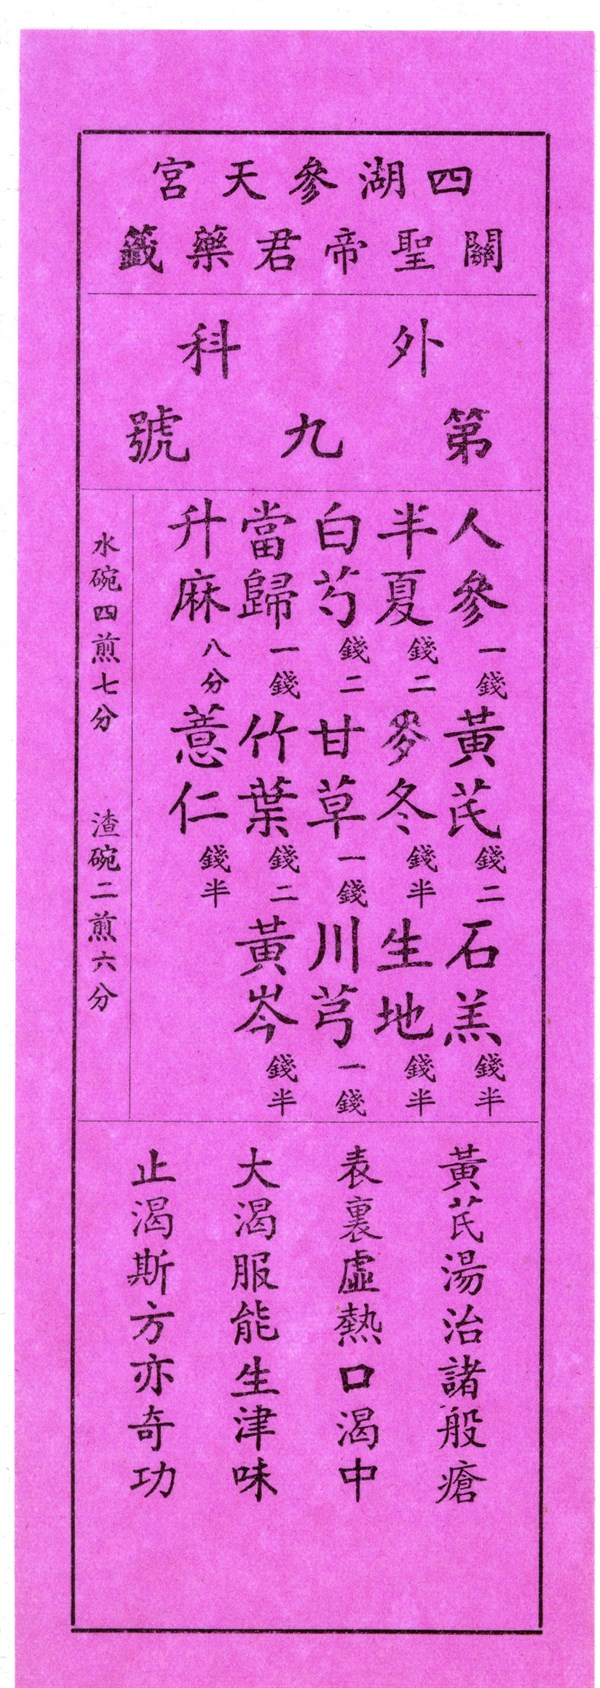 四湖參天宮
關聖帝君藥籤
外科
第九號
人參一錢 黃芪錢二 石羔錢半
半夏錢二 麥冬錢半 生地錢半
白芍錢二 甘草一錢 川芎一錢
當歸一錢 竹葉錢二 黃岑錢半
升麻八分 薏仁錢半
水碗四煎七分 渣碗二煎六分
黃芪湯治諸般瘡
表裏虛熱口渴中
大渴服能生津味
止渴斯方亦奇功